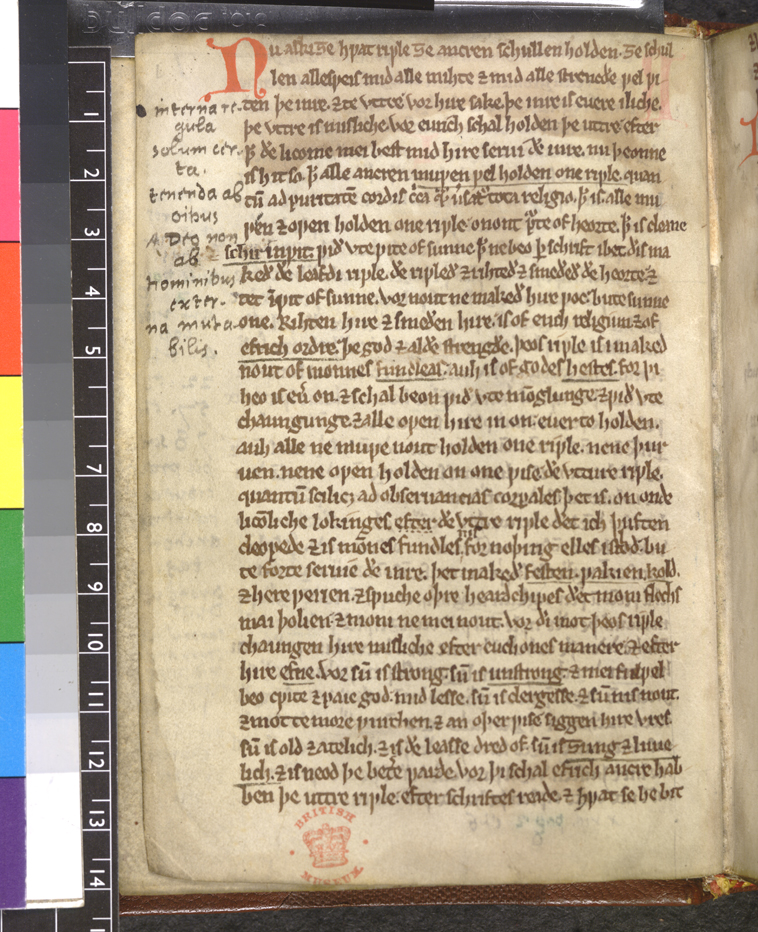 Nu aski ȝe hƿat riƿle ȝe ancren schullen holden. ȝe schul
len allesƿeis mid alle mihte ⁊ mid alle strencðe ƿel ƿi
ten þe inre. ⁊ te vttre vor hire sake. þe inre is euere iliche.
þe vttre is misliche. vor eurich schal holden þe uttre efter
þ̄ ðe licome mei best mid hire serui ðe inre. nu þeonne
is hit so. þ̄ alle ancren muƿen ƿel holden one riƿle. quan
tū ad puritatē cordis c̄ca tota religio. þ̄ is. alle mu
ƿen ⁊ oƿen holden one riƿle. onont p̄te of heorte. þ̄ is cleane
⁊ schir inƿit. ƿið vte ƿite of sunne þ̄ ne beo þ̵ schrift ibet. ðis ma
keð ðe leafdi riƿle. ðe riƿleð ⁊ rihteð ⁊ smeðeð ðe heorte. ⁊
tet īƿit of sunne. vor nout ne makeð hire ƿoc. bute sunne
one. Rihten hire ⁊ smeðen hire. is of euch religiun. ⁊ of
efrich ordre. þe god ⁊ al ðe strengðe. þeos riƿle is imaked
nout of monnes fundleas. auh is of godes hestes. for þi
heo is eu̅ on. ⁊ schal beon ƿið vte mōglunge. ⁊ ƿið vte
chaungunge. ⁊ alle oƿen hire in on. euer to holden.
auh alle ne muƿe nout holden one riƿle. ne ne þur
uen. ne ne oƿen holden on one ƿise ðe vtture riƿle.
quantū scilicȝ ad obseruancias corporales. þet is. onond
licōliche lokinges. efter ðe vttre riƿle ðet ich þuften
cleopede ⁊ is mōnes fundles. for noþing elles istod. bu
te forte seruie ðe inre. þet makeð festen. ƿakien. kold.
⁊ here ƿerien. ⁊ sƿuche oþre heardschipes ðet moni flechs
mai þolien. ⁊ moni ne mei nout. vor ði mot þeos riƿle
chaungen hire misliche efter euch ones manere. ⁊ efter
hire efne. vor sū is strong. sū is unstrong. ⁊ mei ful ƿel
beo cƿite ⁊ paie god. mid lesse. sū is clergesse. ⁊ sū nis nout.
⁊ mot te more ƿurchen. ⁊ an oþer ƿise siggen hire vres.
sū is old ⁊ atelich. ⁊ is ðe leasse dred of. sū is ȝung ⁊ liue
lich. ⁊ is neod þe betē ƿarde. vor þi schal efrich ancre hab
ben þe uttre riƿle. efter schriftes reade. ⁊ hƿat se he bit
interna re-
gula
solum cer-
ta.
tenenda ab
oībus
A Deo non
ab
hominibus
exter-
na muta-
bilis.
BRITISH
MUSEUM
1
2
3
4
5
7
8
9
10
11
12
13
14